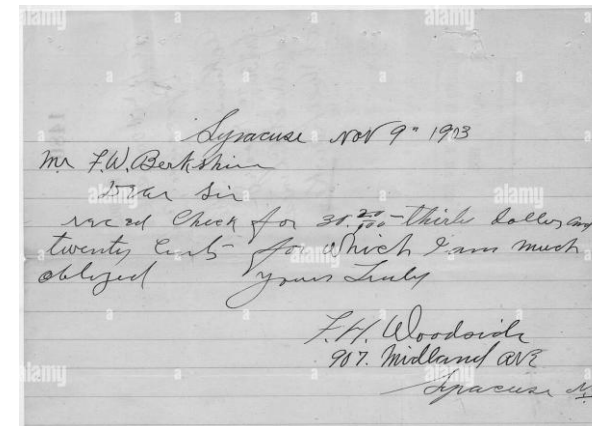 Syracuse Nov 9" 1913
Mr F.W. Berkshire
Dear Sir
recd Check for 30.20/100 - thirty Dollars and
twenty Cents for which I am much
obliged yours Truly
F.H. Woodside
907. Midland AVE
Syracuse N.